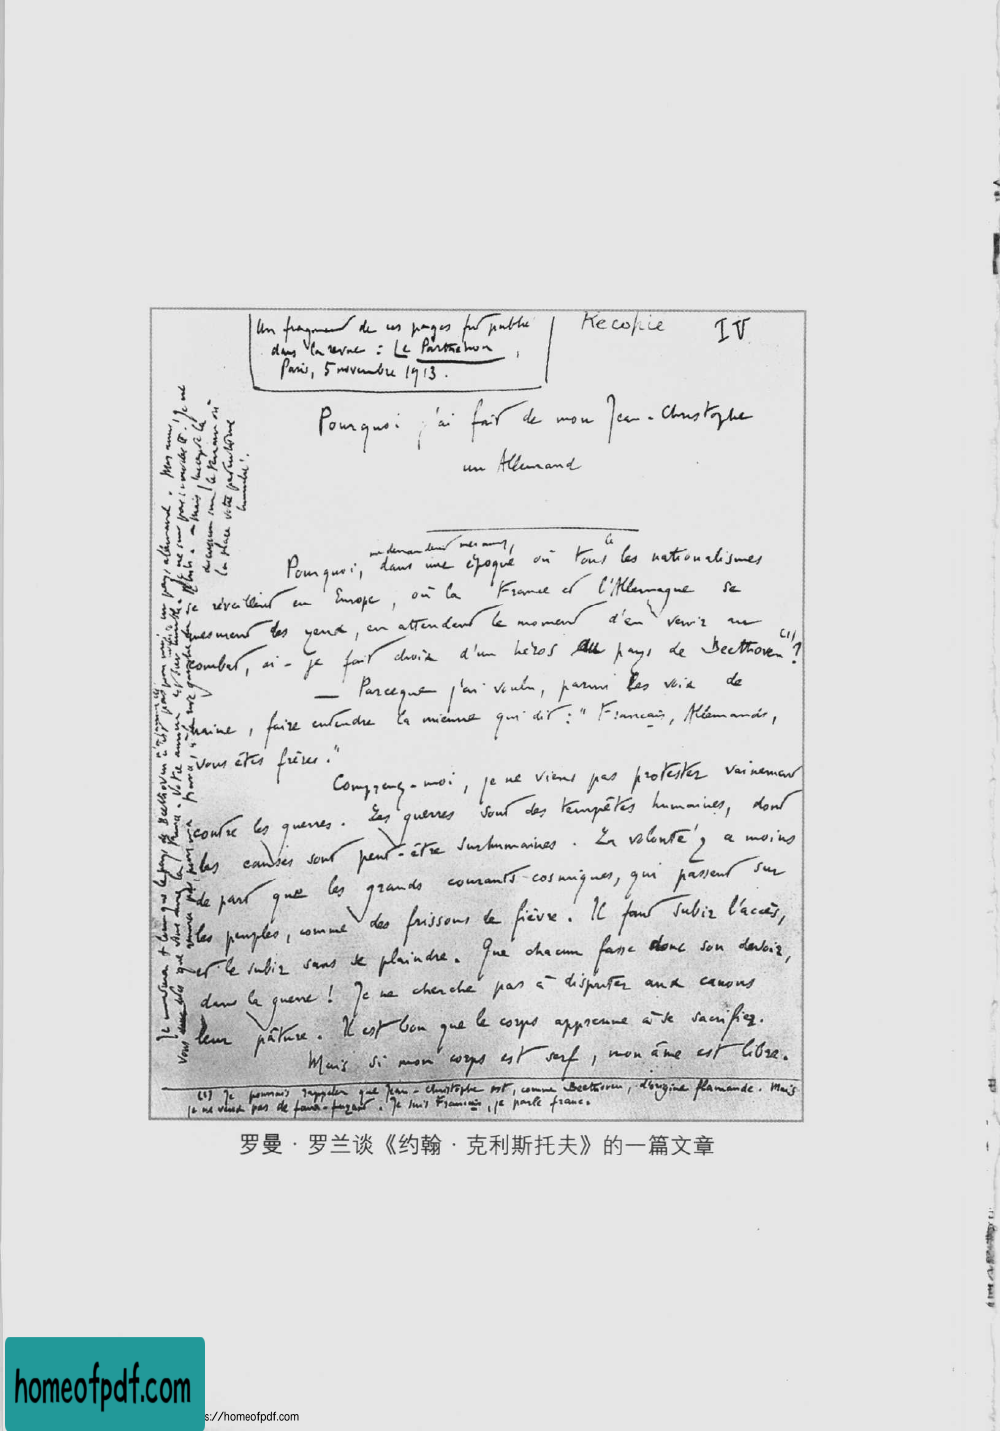 Un fragment de ces pages fut publié
dans la revue : Le Parthénon,
Paris, 5 novembre 1913.
Recopié
IV
Pourquoi j'ai fait de mon Jean-Christophe
un Allemand
me demandent mes amis,
Pourquoi, dans une époque où tous les nationalismes
se réveillent en Europe, où la France et l'Allemagne se
mesurent des yeux, en attendant le moment d'en venir au
combat, ai-je fait choix d'un héros au pays de Beethoven (1) ?
— Parceque j'ai voulu, parmi les voix de
haine, faire entendre la mienne qui dit : "Français, Allemands,
vous êtes frères."
Comprenez-moi, je ne viens pas protester vainement
contre les guerres. Les guerres sont des tempêtes humaines, dont
les causes sont peut-être surhumaines. La volonté y a moins
de part que les grands courants cosmiques, qui passent sur
les peuples, comme des frissons de fièvre. Il faut subir l'accès,
et le subir sans se plaindre. Que chacun fasse donc son devoir,
dans la guerre ! Je ne cherche pas à disputer aux canons
leur pâture. Il est bon que le corps apprenne à se sacrifier.
Mais si mon corps est serf, mon âme est libre.
(1) Je pourrais rappeler que Jean-Christophe est, comme Beethoven, d'origine flamande. Mais
je ne veux pas de faux-fuyant. Je suis Français, je parle franc.
罗曼·罗兰谈《约翰·克利斯托夫》的一篇文章
homeofpdf.com
s://homeofpdf.com